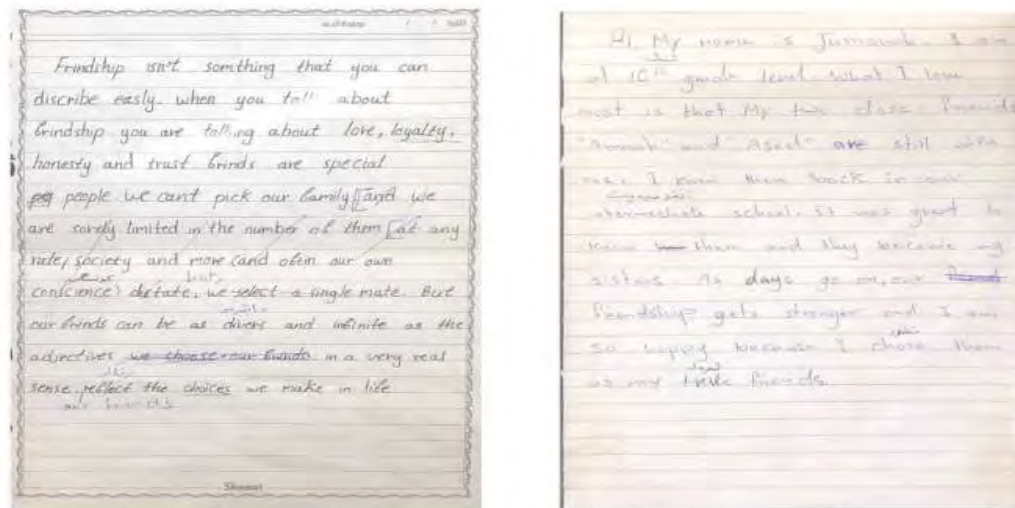 Frindship isn't somthing that you can
discribe easly. when you talk about
frindship you are talking about love, loyalty,
honesty and trust frinds are special
people we cant pick our family [and we
are sorely limited in the number of them [at any
rate, society and more (and oftin our own
but,
conscience) dictate, we select a single mate. But
our frinds can be as divers and infinite as the
adjectives we choose our frinds in a very real
sense, reflect the choices we make in life
our friends
Hi, My name is Jumanah. I am
at 10th grade level. What I love
most is that My two close friends
and "Aseel" are still with
me. I knew them back in our
intermediate school. it was great to
know them and they became my
sisters. As days go on, our
friendship gets stronger and I am
so happy because I chose them
as my friends.